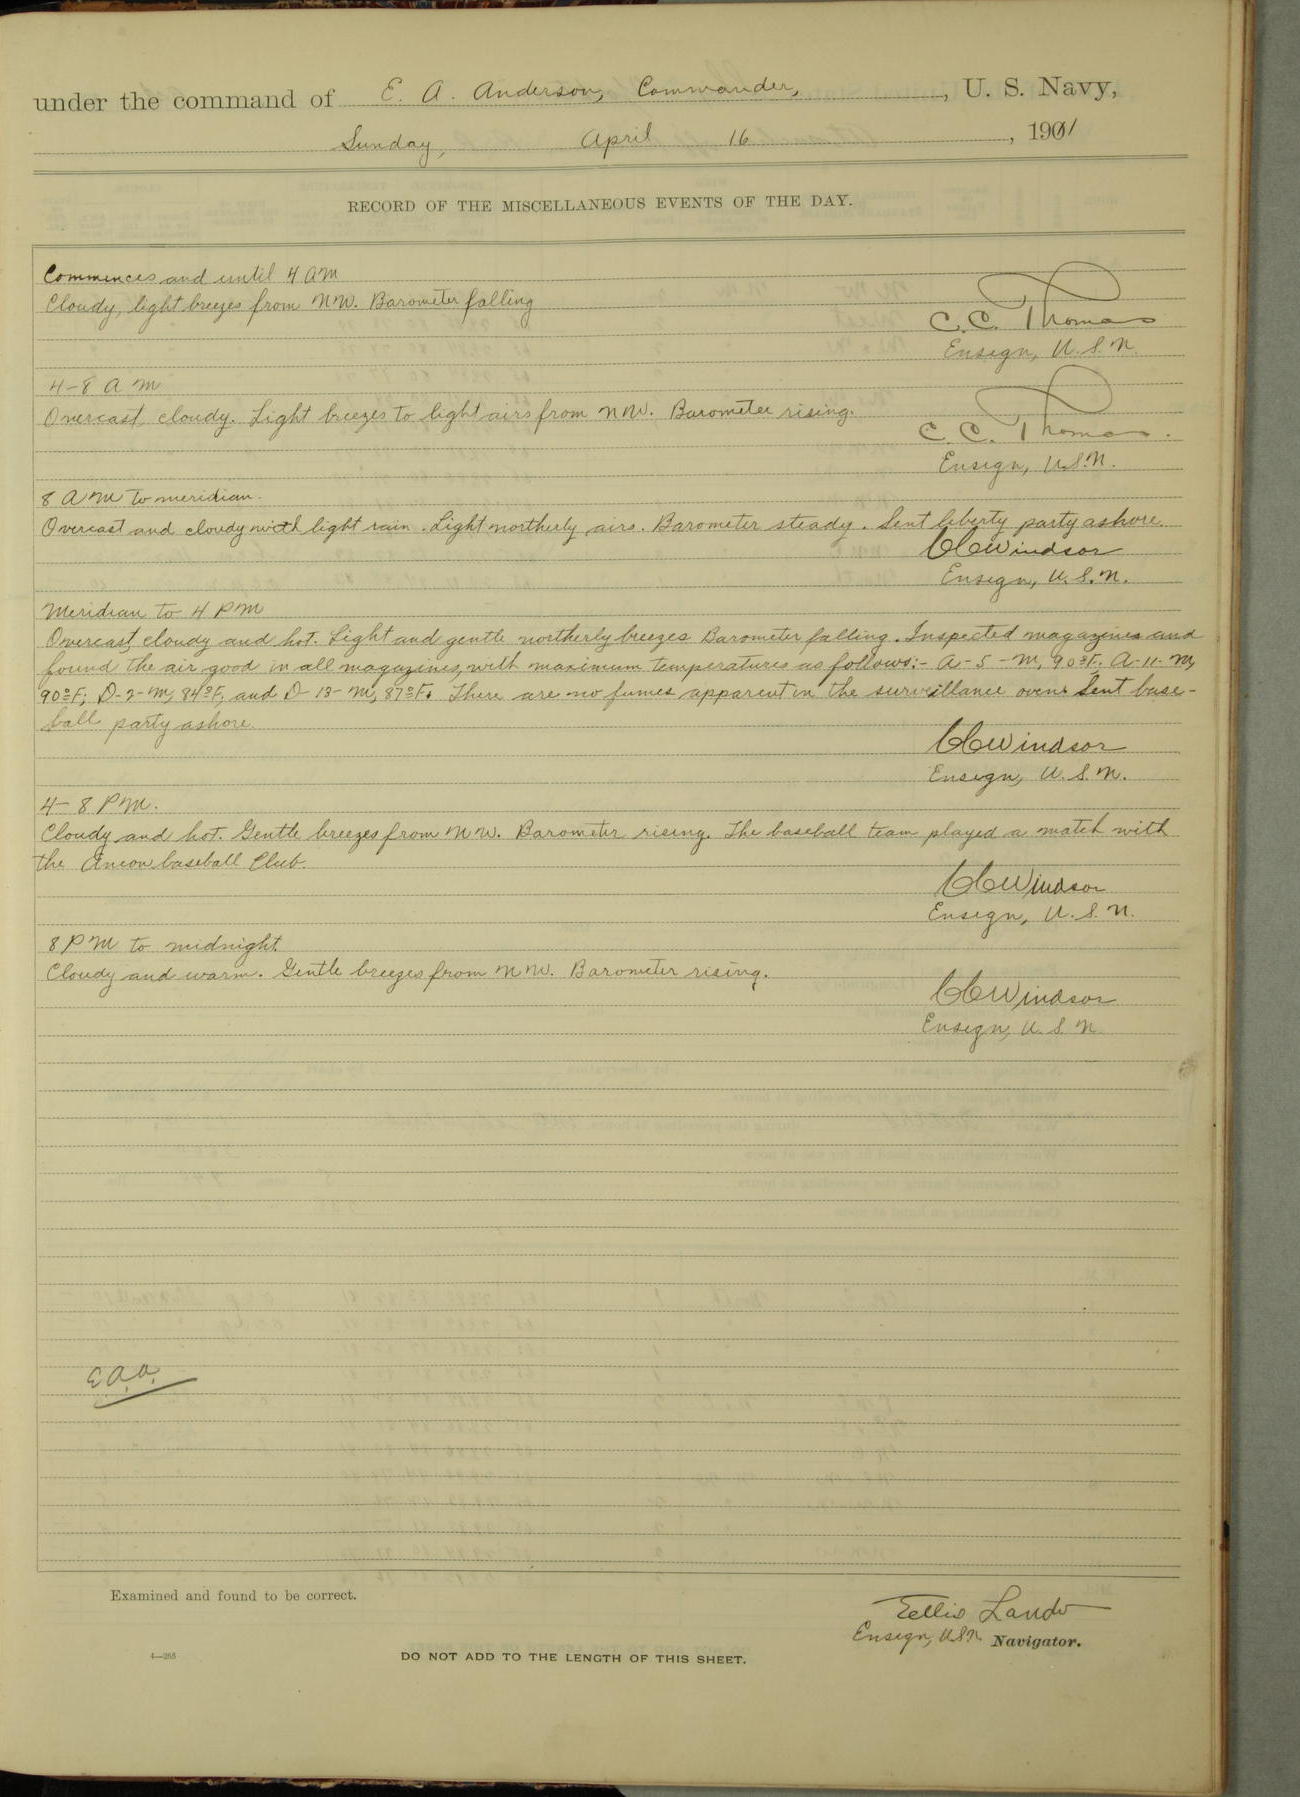 under the command of E. A. Anderson, Commander, , U. S. Navy,
Sunday, April 16 , 1911
RECORD OF THE MISCELLANEOUS EVENTS OF THE DAY.
Commences and until 4 AM
Cloudy, light breezes from NW. Barometer falling
C. C. Thomas
Ensign, U. S. N.
4-8 A M
Overcast, cloudy. Light breezes to light airs from NW. Barometer rising.
C. C. Thomas.
Ensign, U.S.N.
8 AM to meridian.
Overcast and cloudy with light rain. Light northerly airs. Barometer steady. Sent liberty party ashore
Windsor
Ensign, U. S. N.
Meridian to 4 PM
Overcast, cloudy and hot. Light and gentle northerly breezes Barometer falling. Inspected magazines and
found the air good in all magazines, with maximum temperatures as follows:- A-5-M, 90°F; A-11-M,
90°F; D-2-M, 84°F, and D-13-M, 87°F. There are no fumes apparent in the surveillance oven. Sent base-
ball party ashore.
Windsor
Ensign, U. S. N.
4-8 PM.
Cloudy and hot. Gentle breezes from NW. Barometer rising. The baseball team played a match with
the Ancon baseball Club.
Windsor
Ensign, U. S. N.
8 PM to midnight.
Cloudy and warm. Gentle breezes from NW. Barometer rising.
Windsor
Ensign, U. S. N
E.A.A.
Examined and found to be correct.
Ellis Lando
Ensign, USN Navigator.
4—255
DO NOT ADD TO THE LENGTH OF THIS SHEET.